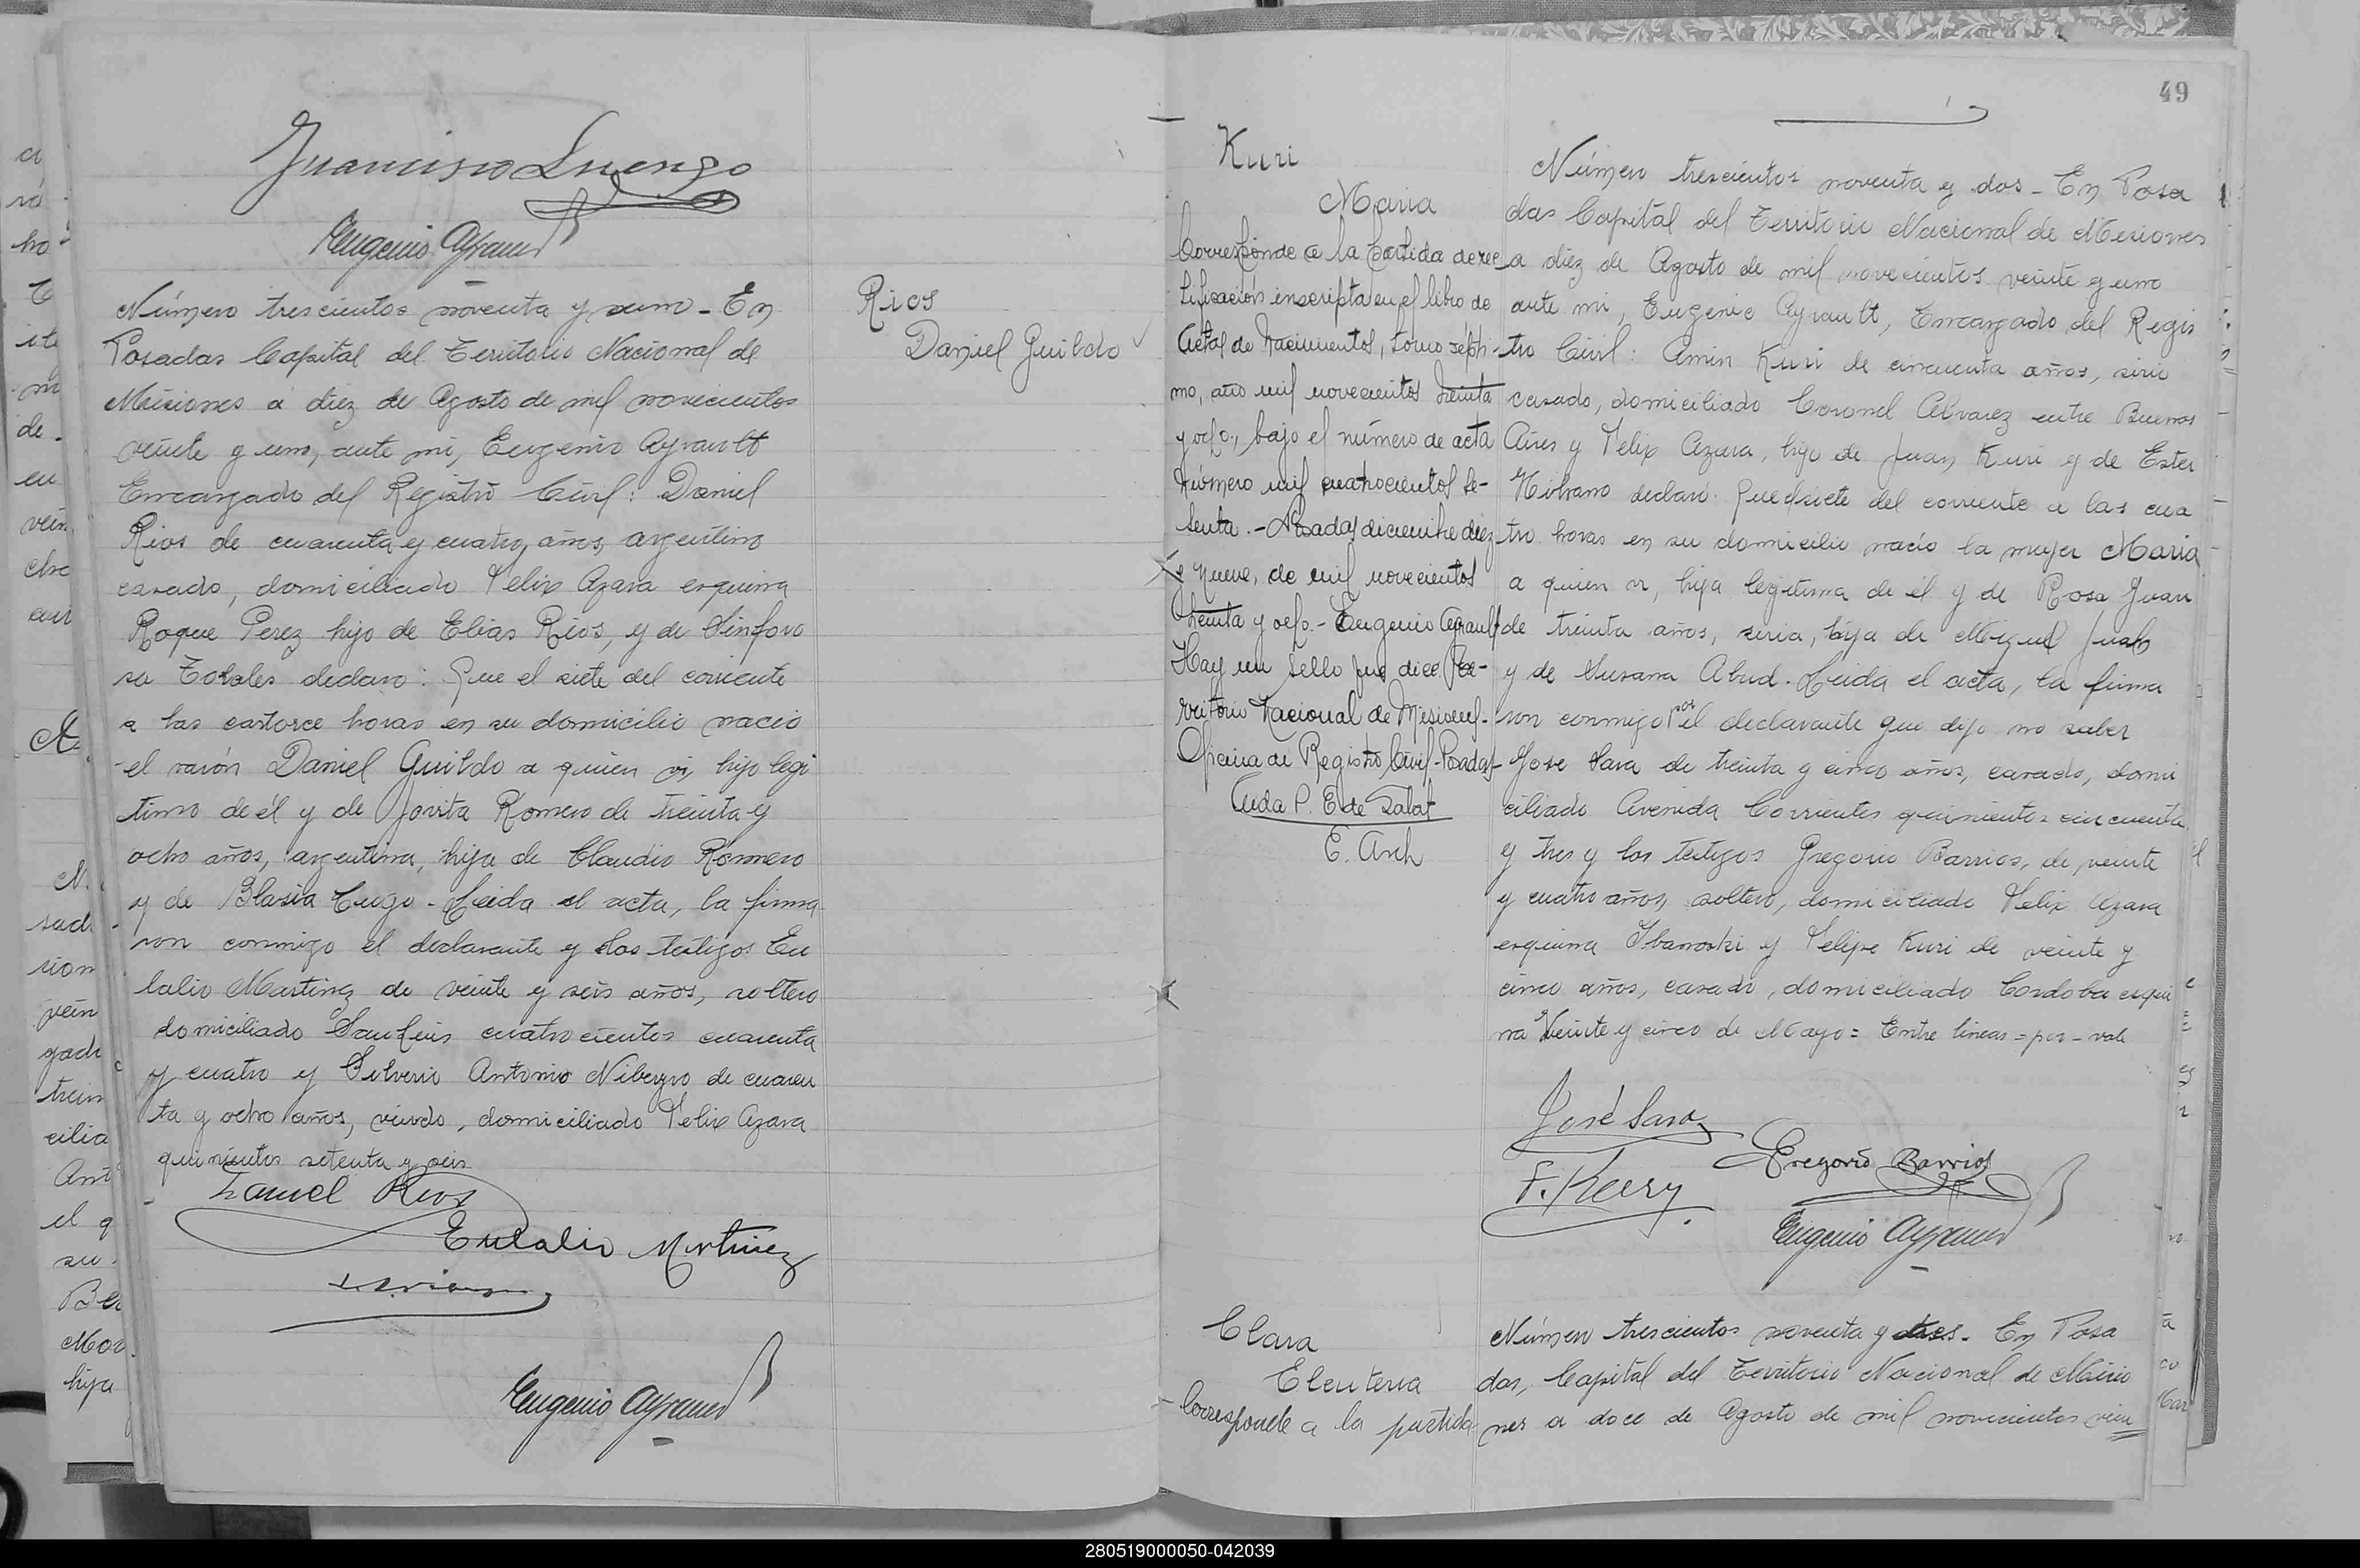 Francisco Luengo
Eugenio Ayrault
Número trescientos noventa y uno - En
Posadas Capital del Territorio Nacional de
Misiones á diez de Agosto de mil novecientos
veinte y uno, ante mi, Eugenio Ayrault
Encargado del Registro Civil: Daniel
Rios de cuarenta y cuatro, años, argentino
casado, domiciliado Felix Azara esquina
Roque Perez hijo de Elias Rios, y de Sinforo
sa declaro: Que el siete del corriente
a las catorce horas en su domicilio nacio
el varón Daniel Guildo a quien vi, hijo legi
timo de él y de Jovita Romero de treinta y
ocho años, argentina, hija de Claudio Romero
y de Blasia Lugo - Leida el acta, la firma
ron conmigo el declarante y los testigos Eu
lalio Martinez de veinte y seis años, soltero
domiciliado San Luis cuatrocientos cuarenta
y cuatro y Silverio Antonio de cuaren
ta y ocho años, viudo, domiciliado Felix Azara
quinientos setenta y seis
Daniel Rios
Eulalio Martinez
Eugenio Ayrault
Rios
Daniel Guildo
49
Kuri
Maria
Corresponde a la Partida de rec
tificación inscripta en el libro de
Actas de Nacimientos, tomo sépti-
mo, año mil novecientos treinta
y ocho, bajo el número de acta
número mil cuatrocientos se-
senta. - Posadas diciembre diez
y nueve, de mil novecientos
treinta y ocho. - Eugenio Ayrault
Hay un sello que dice Te-
rritorio Nacional de Misiones -
Oficina de Registro Civil - Posadas
E. Arch
Número trescientos noventa y dos - En Posa
das Capital del Territorio Nacional de Misiones
a diez de Agosto de mil novecientos veinte y uno
ante mi, Eugenio Ayrault, Encargado del Regis
tro Civil: Amin Kuri de cincuenta años, sirio
casado, domiciliado Coronel Alvarez entre Buenos
Aires y Felix Azara, hijo de Juan Kuri y de Ester
declaró: Que el siete del corriente a las cua
tro horas en su domicilio nacio la mujer Maria
a quien vi, hija legitima de él y de Rosa Juan
de treinta años, siria, hija de Miguel Juan
y de Susana Abud. Leida el acta, la firma
ron conmigo por el declarante que dijo no saber
Jose Sara de treinta y cinco años, casado, domi
ciliado Avenida Corrientes quinientos cincuenta
y tres y los testigos Gregorio Barrios, de veinte
y cuatro años, soltero, domiciliado Felix Azara
esquina y Felipe Kuri de veinte y
cinco años, casado, domiciliado Cordoba esqui
na Veinte y cinco de Mayo = Entre lineas = por - vale
José Sara
Gregorio Barrios
F. Kury
Eugenio Ayrault
Clara
Eleuteria
Corresponde a la partida
Número trescientos noventa y tres - En Posa
das, Capital del Territorio Nacional de Misio
nes a doce de Agosto de mil novecientos vein
280519000050-042039